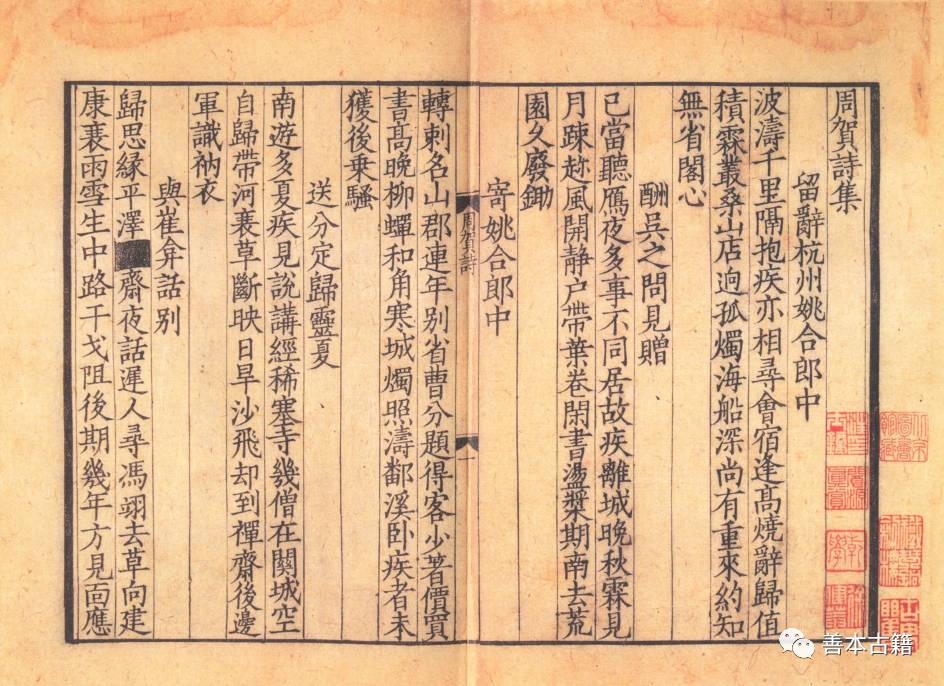 周賀詩集
留辭杭州姚合郎中
波濤千里隔抱疾亦相尋會宿逢髙燒辭歸值
積霖叢桑山店逈孤燭海船深尚有重來約知
無省閣心
酬吳之問見贈
已當聽鴈夜多事不同居故疾離城晚秋霖見
月疎趂風開静户帶葉卷閑書盪槳期南去荒
園久廢鋤
寄姚合郎中
轉刺名山郡連年别省曹分題得客少著價買
書髙晚柳蟬和角寒城燭照濤鄱溪卧疾者未
獲後乗騷
周賀詩
一
送分定歸靈夏
南遊多夏疾見說講經稀塞寺幾僧在關城空
自歸帶河衰草斷映日旱沙飛却到禪齋後邊
軍識衲衣
與崔弇話别
歸思縁平澤齋夜話遲人尋馮翊去草向建
康衰雨雪生中路干戈阻後期幾年方見面應
善本古籍